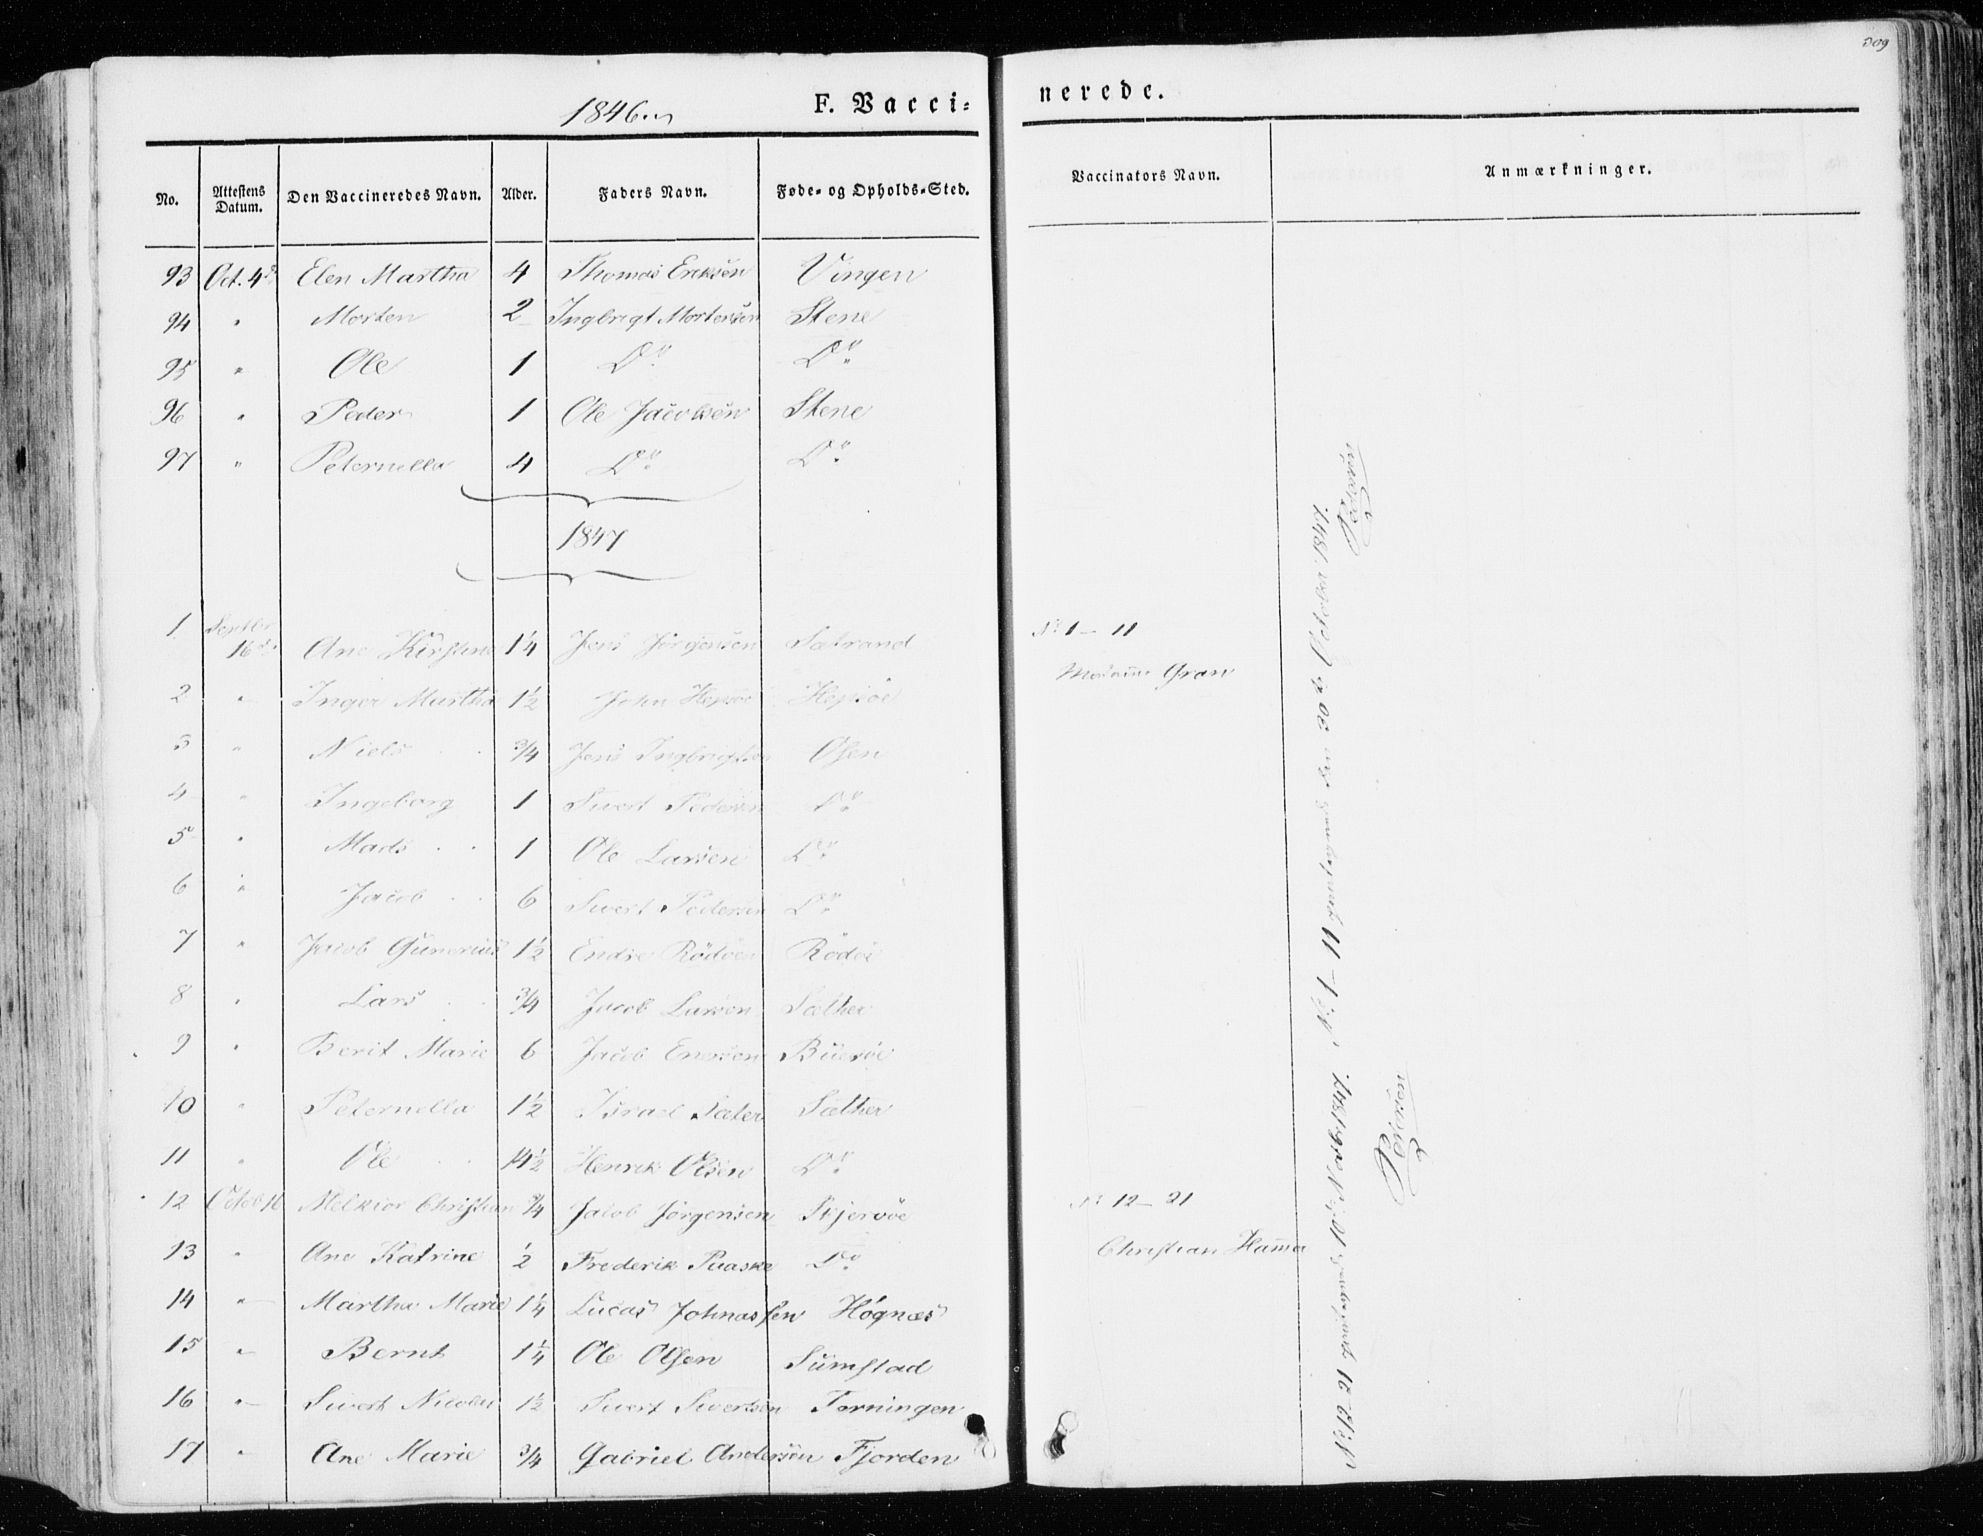 309
1846.
F. Vacci=
nerede.
No. Attestens Datum. Den Vaccineredes Navn. Alder. Faders Navn. Føde= og Opholds=Sted. Vaccinators Navn. Anmærkninger.
93 Oct. 4d Elen Martha 4 Thomas Eriksen Vingen
94 " Morten 2 Ingbrigt Mortensen Stene
95 " Ole 1 Do Do
96 " Peder 1 Ole Jacobsen Stene
97 " Peternella 4 Do Do
1847
1 Septbr 16d Ane Kirstine 1¼ Jens Jørgensen Sætrand No 1 - 11
2 " Inger Martha 1½ John Hepsøe Hepsøe Madame Gran
3 " Niels ¾ Jens Ingbrigtsen Osen
4 " Ingeborg 1 Sivert Pedersen Do
5 " Mads 1 Ole Larsen Do
6 " Jacob 6 Sivert Pedersen Do
7 " Jacob Gunerius 1½ Endre Rödöen Rödöe
8 " Lars ¾ Jacob Larsen Sæther
9 " Berit Marie 6 Jacob Buerøe
10 " Peternella 1½ Israel Sæter Sæther
11 " Ole 1½ Henrik Olsen Do
12 Octob 16 Melkior Christian ¾ Jacob Jørgensen Skjervöe No 12 - 21
13 " Ane Katrine ½ Frederik Paaske Do Christian Hamer
14 " Martha Marie 1¼ Lucas Johnassen Høgnæs
15 " Bernt 1¼ Ole Olsen Sumstad
16 " Sivert Nicolai 1½ Sivert Sivertsen Terningen
17 " Ane Marie ¾ Gabriel Andersen Fjorden
No 1 - 11 den 30te October 1847.
Pedersen
No 12-21 10de 1847.
Pedersen